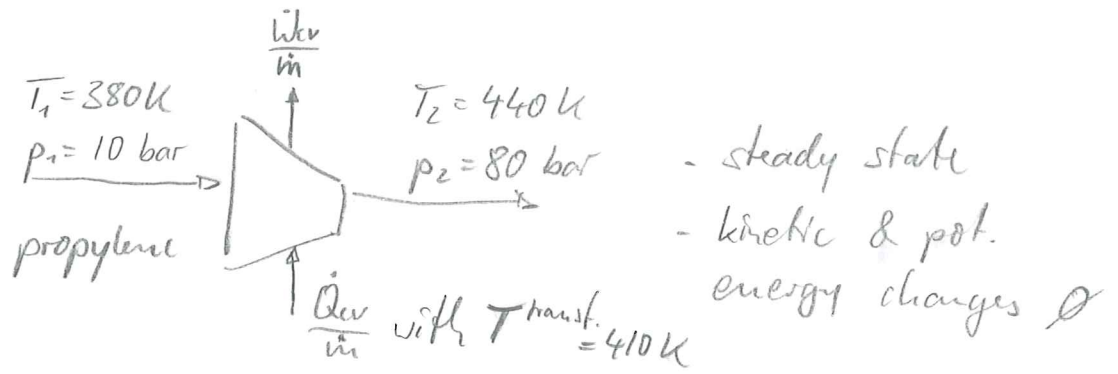 Ẇcv/ṁ
T₁ = 380K
p₁ = 10 bar
propylene
T₂ = 440K
p₂ = 80 bar
Q̇cv/ṁ with T transf. = 410K
- steady state
- kinetic & pot.
energy changes ∅